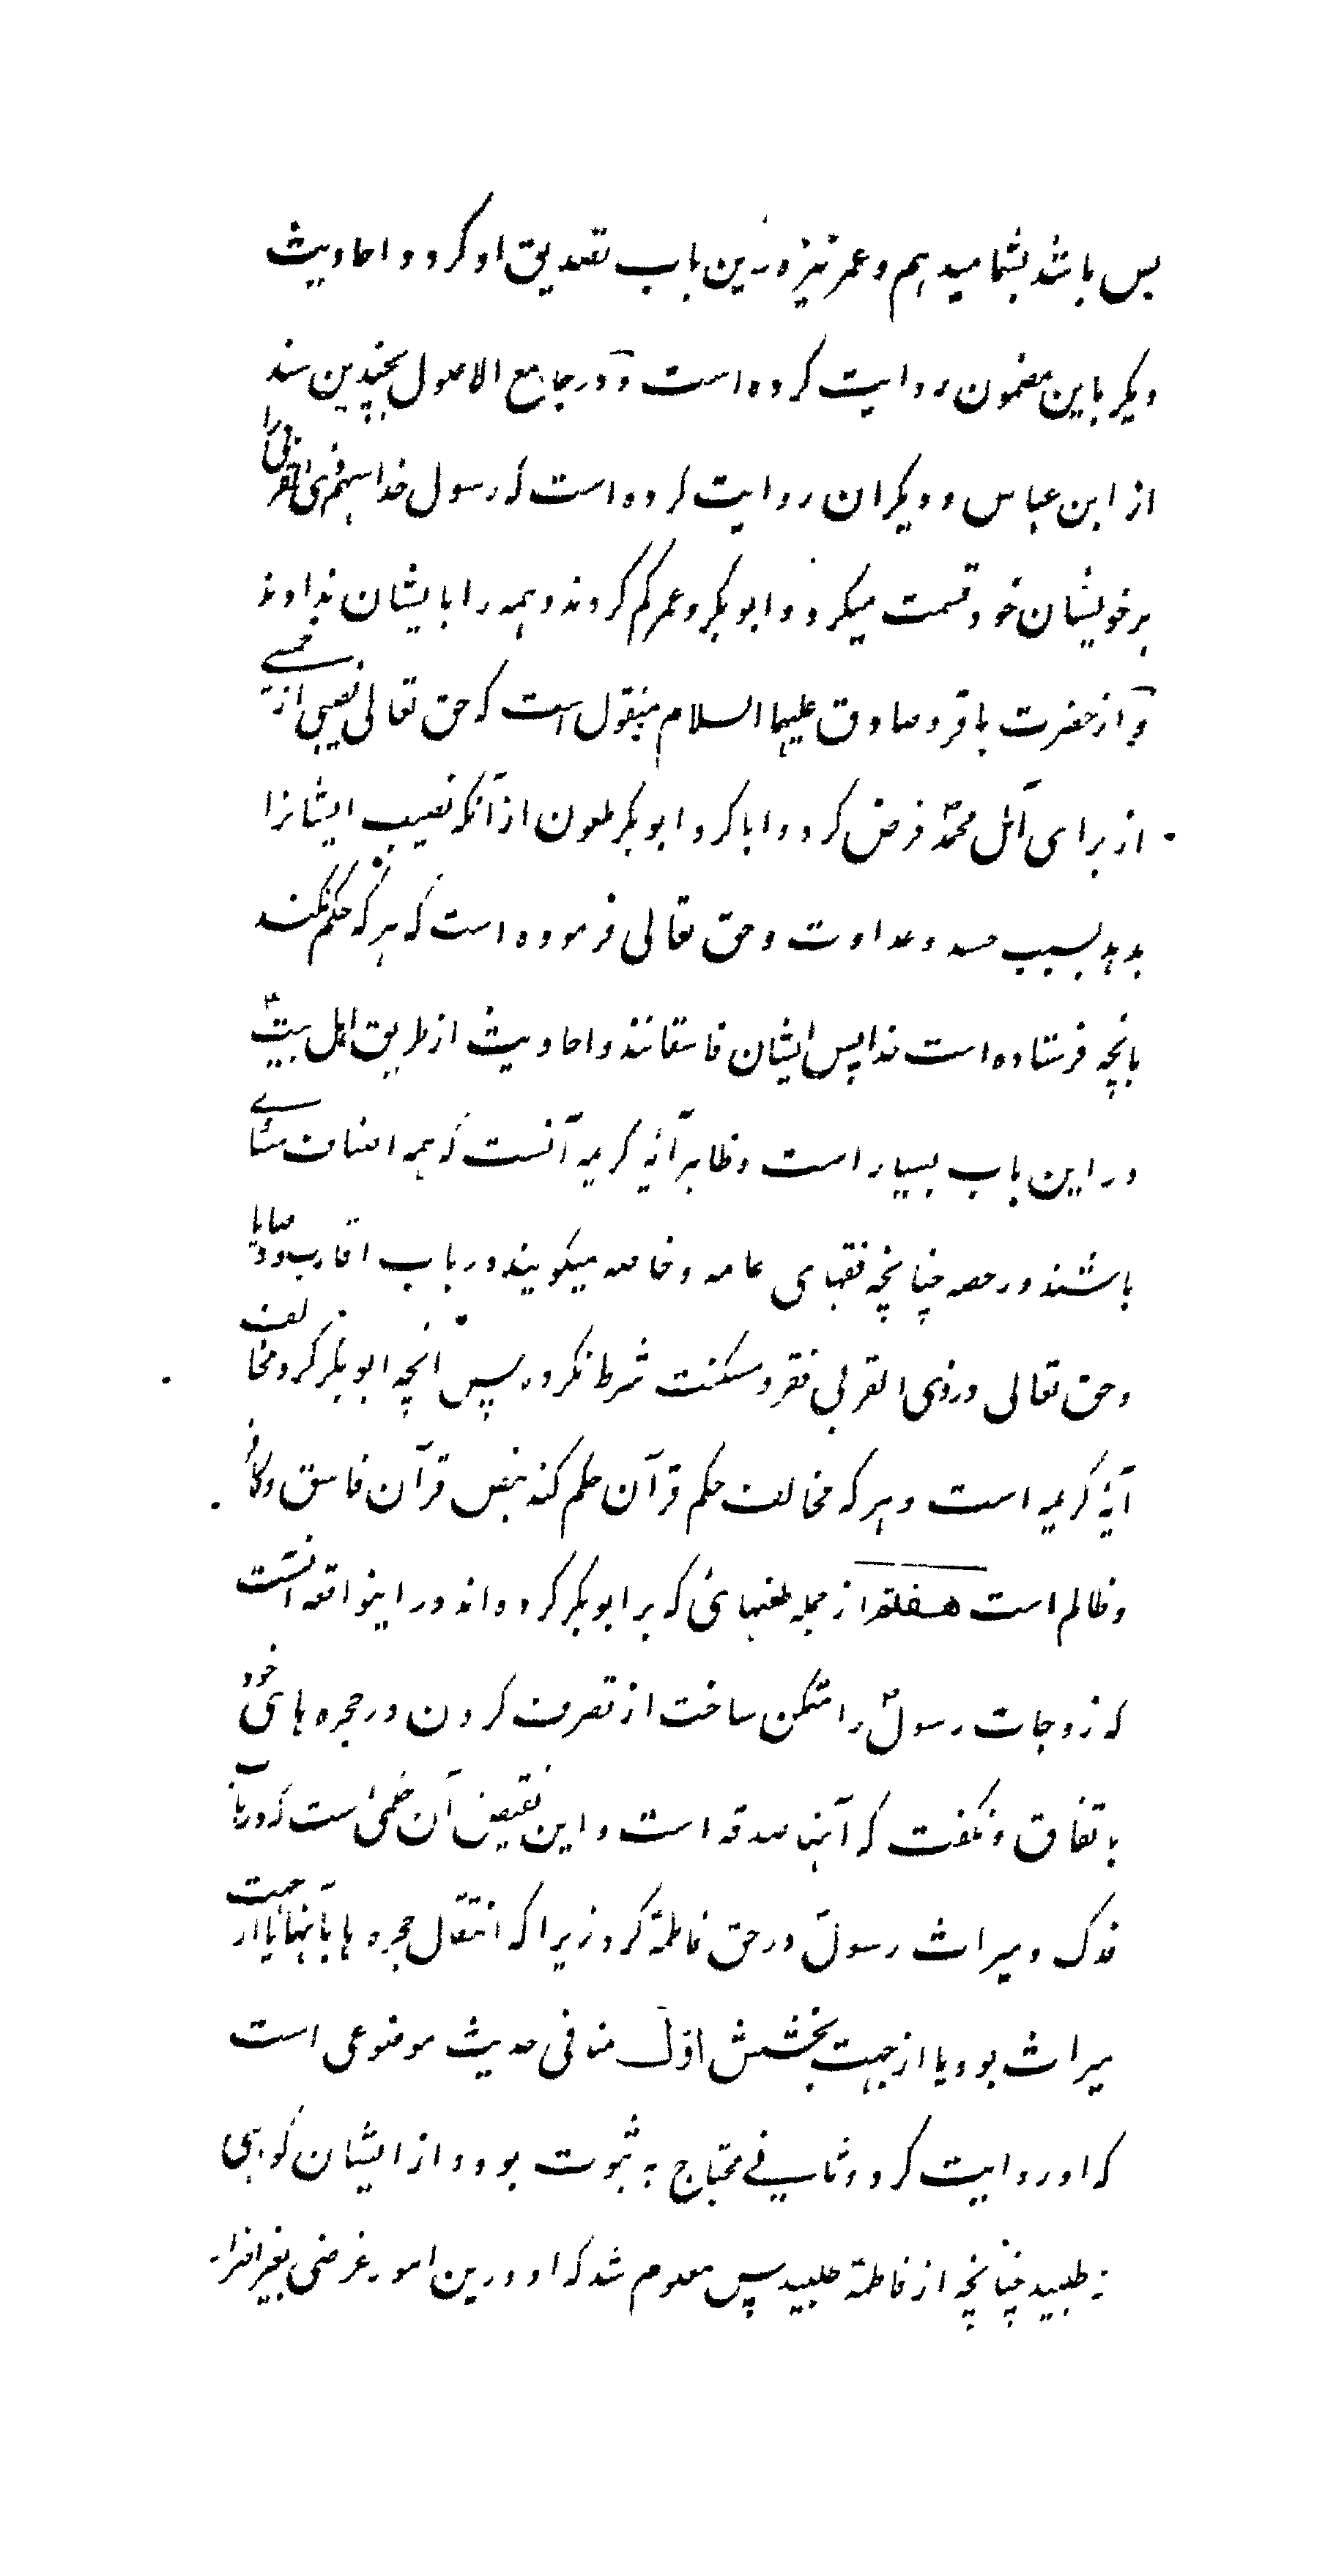 بس باشد بشما میدهم و عمر نیز درین باب تصدیق او کرد و احادیث
دیگر باین مضمون روایت کرده است و در جامع الاصول بچندین سند
از ابن عباس و دیگران روایت کرده است که رسول خدا سهم ذی القربی را
بر خویشان خود قسمت میکرد و ابوبکر و عمر کم کردند و همه را بایشان ندادند
و از حضرت باقر و صادق علیهما السلام منقول است که حق تعالی نصیبی از خمس
از برای آل محمد فرض کرد و ابا کرد ابوبکر ملعون از آنکه نصیب ایشانرا
بدهد بسبب حسد و عداوت و حق تعالی فرموده است که هر که حکم نکند
بانچه فرستاده است خدا پس ایشان فاسقانند و احادیث از طریق اهل بیت
در این باب بسیار است و ظاهر آیه کریمه آنست که همه اصناف مساوی
باشند در حصه چنانچه فقهای عامه و خاصه میکویند در باب اقارب و وصایا
و حق تعالی در ذی القربی فقر و مسکنت شرط نکرده پس آنچه ابوبکر کرد مخالف
آیه کریمه است و هر که مخالف حکم قرآن حکم کند بنص قرآن فاسق و کافر
و ظالم است هفتم از جمله طعنهائی که بر ابوبکر کرده‌اند در اینواقعه آنست
که زوجات رسول را متمکن ساخت از تصرف کردن در حجره های خود
باتفاق و نکفت که آنها صدقه است و این نقیض آن حکمی است که در باب
فدک و میراث رسول در حق فاطمه کرد زیرا که انتقال حجره ها بآنها یا از جهت
میراث بود یا از جهت بخشش اول منافی حدیث موضوعی است
که او روایت کرد و ثانی محتاج به ثبوت بود و از ایشان کواهی
نطلبید چنانچه از فاطمه طلبید پس معلوم شد که او درین امور غرضی بغیر اضرار